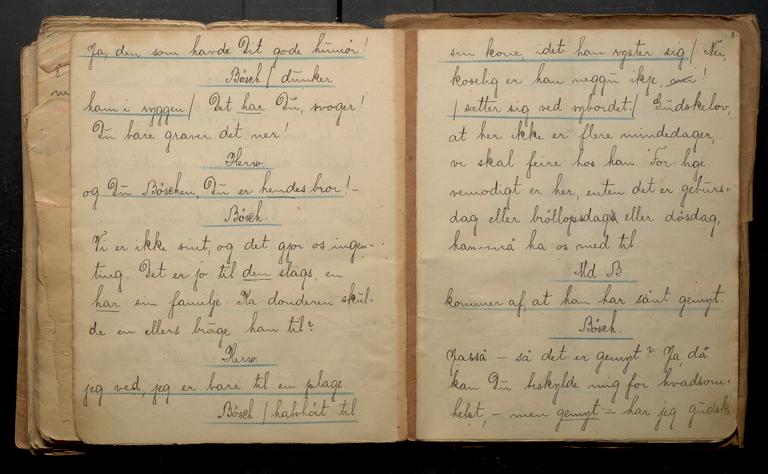 Ja, den som havde Dit gode humør!
Bösch / dunker
ham i ryggen / Det har Du, svoger!
Du bare graver det ner!
Herw.
og Du Böschen, Du er hendes bror! –
Bösch.
Vi er ikke sint, og det gjør os ingen-
ting. Det er jo til den slags, en
har sin familje. Ka donderen skul-
de en ellers bruge han til?
Herw.
jeg ved, jeg er bare til en plage
Bösch / halvhöit til
8.
sin kone, idet han ryster sig / Nei,
koselig er han neggu ikje, !
/ sætter sig ved sybordet / Gudskelov,
at her ikke er flere mindedager,
vi skal feire hos han. For lige
vemodigt er her, enten det er gebürs-
dag eller bröllopsdag eller dösdag,
han må ha os med til.
Md. B.
kommer af, at han har sånt gemyt.
Bösch.
Jasså – så det er gemyt? Ja, då
kan Du beskylde mig for hvadsom-
helst, – men gemyt – har jeg gudsk-